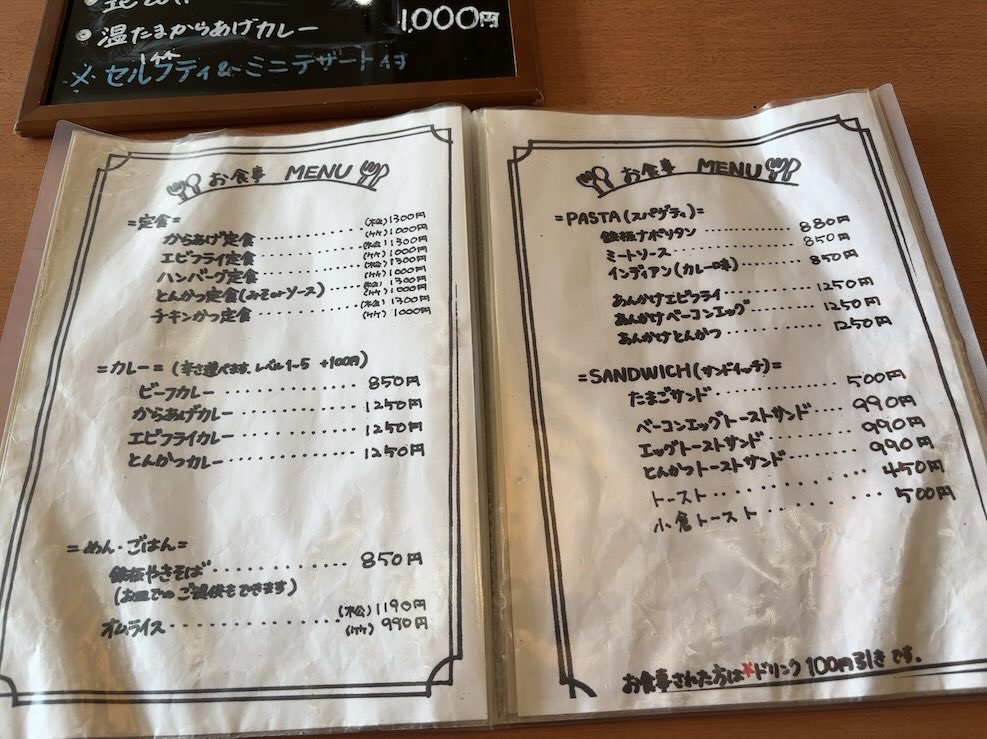 温たまからあげカレー 1,000円
※ セルフティ& ミニデザート付
お食事 MENU
=定食=
からあげ定食 (松)1300円 (竹)1000円
エビフライ定食 (松)1300円 (竹)1000円
ハンバーグ定食 (松)1300円 (竹)1000円
とんかつ定食(みそorソース) (松)1300円 (竹)1000円
チキンかつ定食 (松)1300円 (竹)1000円
=カレー= (辛さ選べます、レベル1~5 +100円)
ビーフカレー 850円
からあげカレー 1250円
エビフライカレー 1250円
とんかつカレー 1250円
=めん・ごはん=
鉄板やきそば 850円
(お皿でのご提供もできます)
オムライス (松)1190円 (竹)990円
お食事 MENU
=PASTA(スパゲティ)=
鉄板ナポリタン 880円
ミートソース 850円
インディアン(カレー味) 850円
あんかけエビフライ 1250円
あんかけベーコンエッグ 1250円
あんかけとんかつ 1250円
=SANDWICH(サンドイッチ)=
たまごサンド 500円
ベーコンエッグトーストサンド 990円
エッグトーストサンド 990円
とんかつトーストサンド 990円
トースト 450円
小倉トースト 500円
お食事された方は*ドリンク100円引きです。